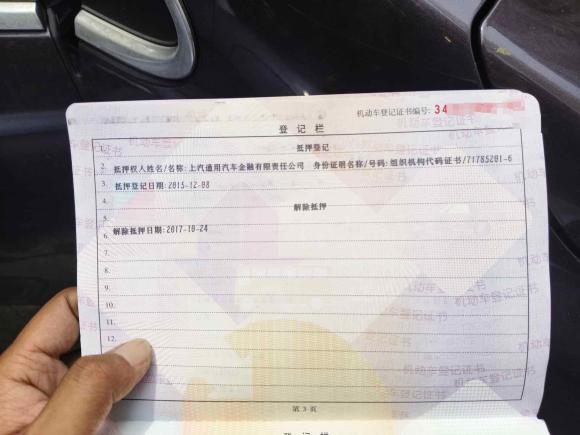 机动车登记证书编号: 34
登 记 栏
1. 抵押登记
2. 抵押权人姓名/名称:上汽通用汽车金融有限责任公司 身份证明名称/号码:组织机构代码证书/71785201-6
3. 抵押登记日期:2015-12-08
4. 解除抵押
5.
6. 解除抵押日期:2017-10-24
7.
8.
9.
10.
11.
12.
第 3 页
登 记 栏